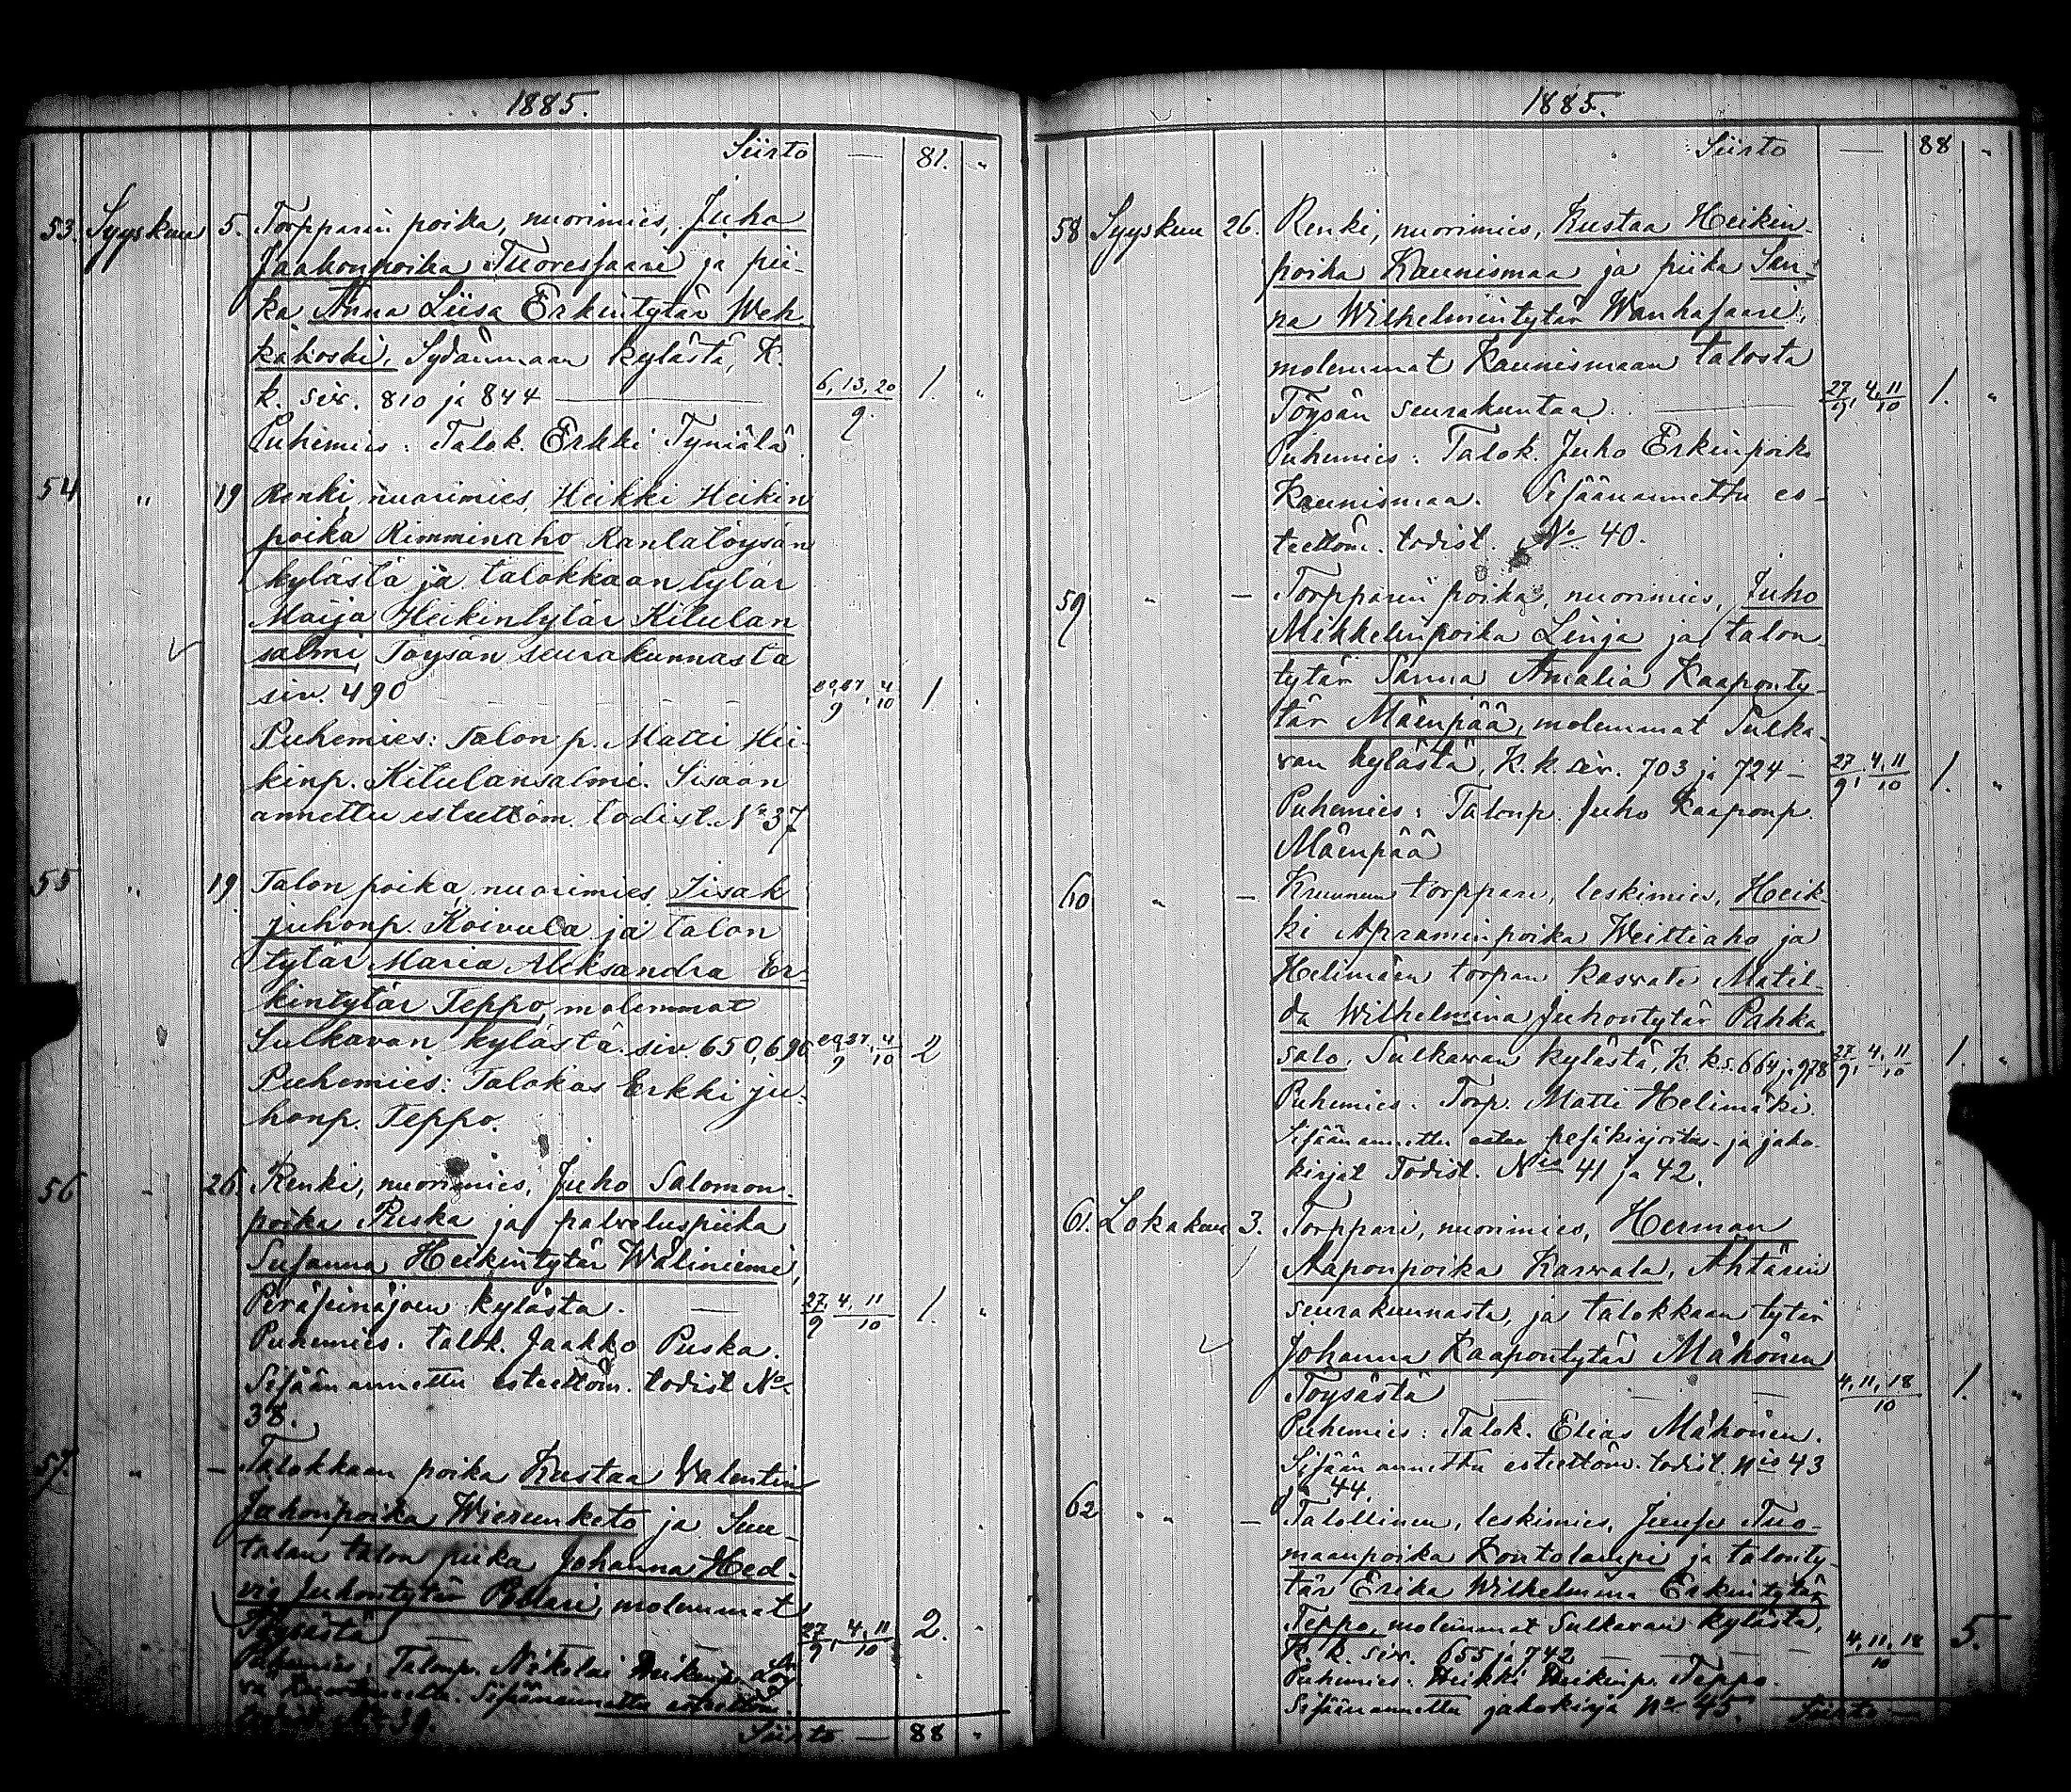 1885.
Siirto — 81. "
53. Syyskuu 5. Torpparin poika, nuorimies, Juha
Jaakonpoika Tuoresſaari ja pii-
ka Anna Liisa Erkintytär Weh-
käkoski, Sydänmaan kylästä, K.
k. siv. 810 ja 844 — 6, 13, 20/9. 1. "
Puhemies: Talok. Erkki Tyniälä.
54 " 19 Renki, nuorimies, Heikki Heikin
poika Rimminaho Rantatöysän
kylästä ja talokkaan tytär
Maija Heikintytär Kitulan
salmi Töysän seurakunnasta
siv. 490 — 20,27/9, 4/10 1
Puhemies: Talon p. Matti Hei-
kinp. Kitulansalmi. Sisään
annettu esteettöm. todist. No 37
55 " 19 Talon poika, nuorimies, Iisak
Juhonp. Koivula ja talon
tytär Maria Aleksandra Er-
kintytär Teppo, molemmat
Sulkavan kylästä. siv. 650, 696 20,27/9, 4/10 2
Puhemies: Talokas Erkki Ju-
honp. Teppo.
56 - 26. Renki, nuorimies, Juho Salomon-
poika Puska ja palveluspiika
Suſanna Heikintytär Wäliniemi,
Peräſeinäjoen kylästä. — 27/9, 4, 11/10 1. "
Puhemies: talok. Jaakko Puska.
Siſään annettu esteettöm. todist No
38.
57. " — Talokkaan poika Kustaa Valentin
Jaakonpoika Wierunketo ja Suu-
talan talon piika Johanna Hed-
vig Juhontytär, molemmat
Töysästä — 27/9, 4, 11/10 2. "
Puhemies: Talonp. Nikolai Heikinp.
Siſäänannettu esteettöm.
todist. No 39.
Siirto — 88 "
1885.
Siirto — 88 "
58 Syyskuu 26. Renki, nuorimies, Kustaa Heikin-
poika Kaunismaa ja piika San-
na Wilhelmintytär Wanhaſaari,
molemmat Kaunismaan talosta
Töysän seurakuntaa. — 27/9, 4, 11/10 1. "
Puhemies: Talok. Juho Erkinpoika
Kaunismaa. Siſäänannettu es-
teettöm. todist. No 40.
59 " — Torpparin poika, nuorimies, Juho
Mikkelinpoika Linja ja talon-
tytär Sanna Amalia Kaaponty-
tär Mäenpää, molemmat Sulka-
van kylästä, K. k. siv. 703 ja 724 — 27/9, 4, 11/10 1. "
Puhemies: Talonp. Juho Kaaponp.
Mäenpää
60 " — Kruunun torppari, leskimies, Heik-
ki Apraminpoika Weittiaho ja
Helimäen torpan kasvate Matil-
da Wilhelmina Juhontytär Pahka-
salo, Sulkavan kylästä, K. k. s. 664 ja 978 27/9, 4, 11/10 1. "
Puhemies: Torp. Matti Helimäki.
Siſään annettu peſäkirjoitus- ja jako-
kirjat Todist. Nis 41 ja 42.
61. Lokakuu 3. Torppari, nuorimies, Herman
Aaponpoika Karvala, Ähtärin
seurakunnasta, ja talokkaan tytär
Johanna Kaapontytär Mähönen
Töysästä — 4, 11, 18/10 1. "
Puhemies: Talok. Elias Mähönen.
Siſään annettu esteettöm. todist. Nis 43
ja 44.
62 " " — Talollinen, leskimies, Tuo-
maanpoika Kontolampi ja talonty-
tär Erika Wilhelmina Erkintytär
Teppo, molemmat Sulkavan kylästä,
K. k. siv. 655 ja 742 — 4, 11, 18/10 5.
Puhemies: Heikki Heikinp. Teppo.
Siſäänannettu jakokirja No 45. Siirto —